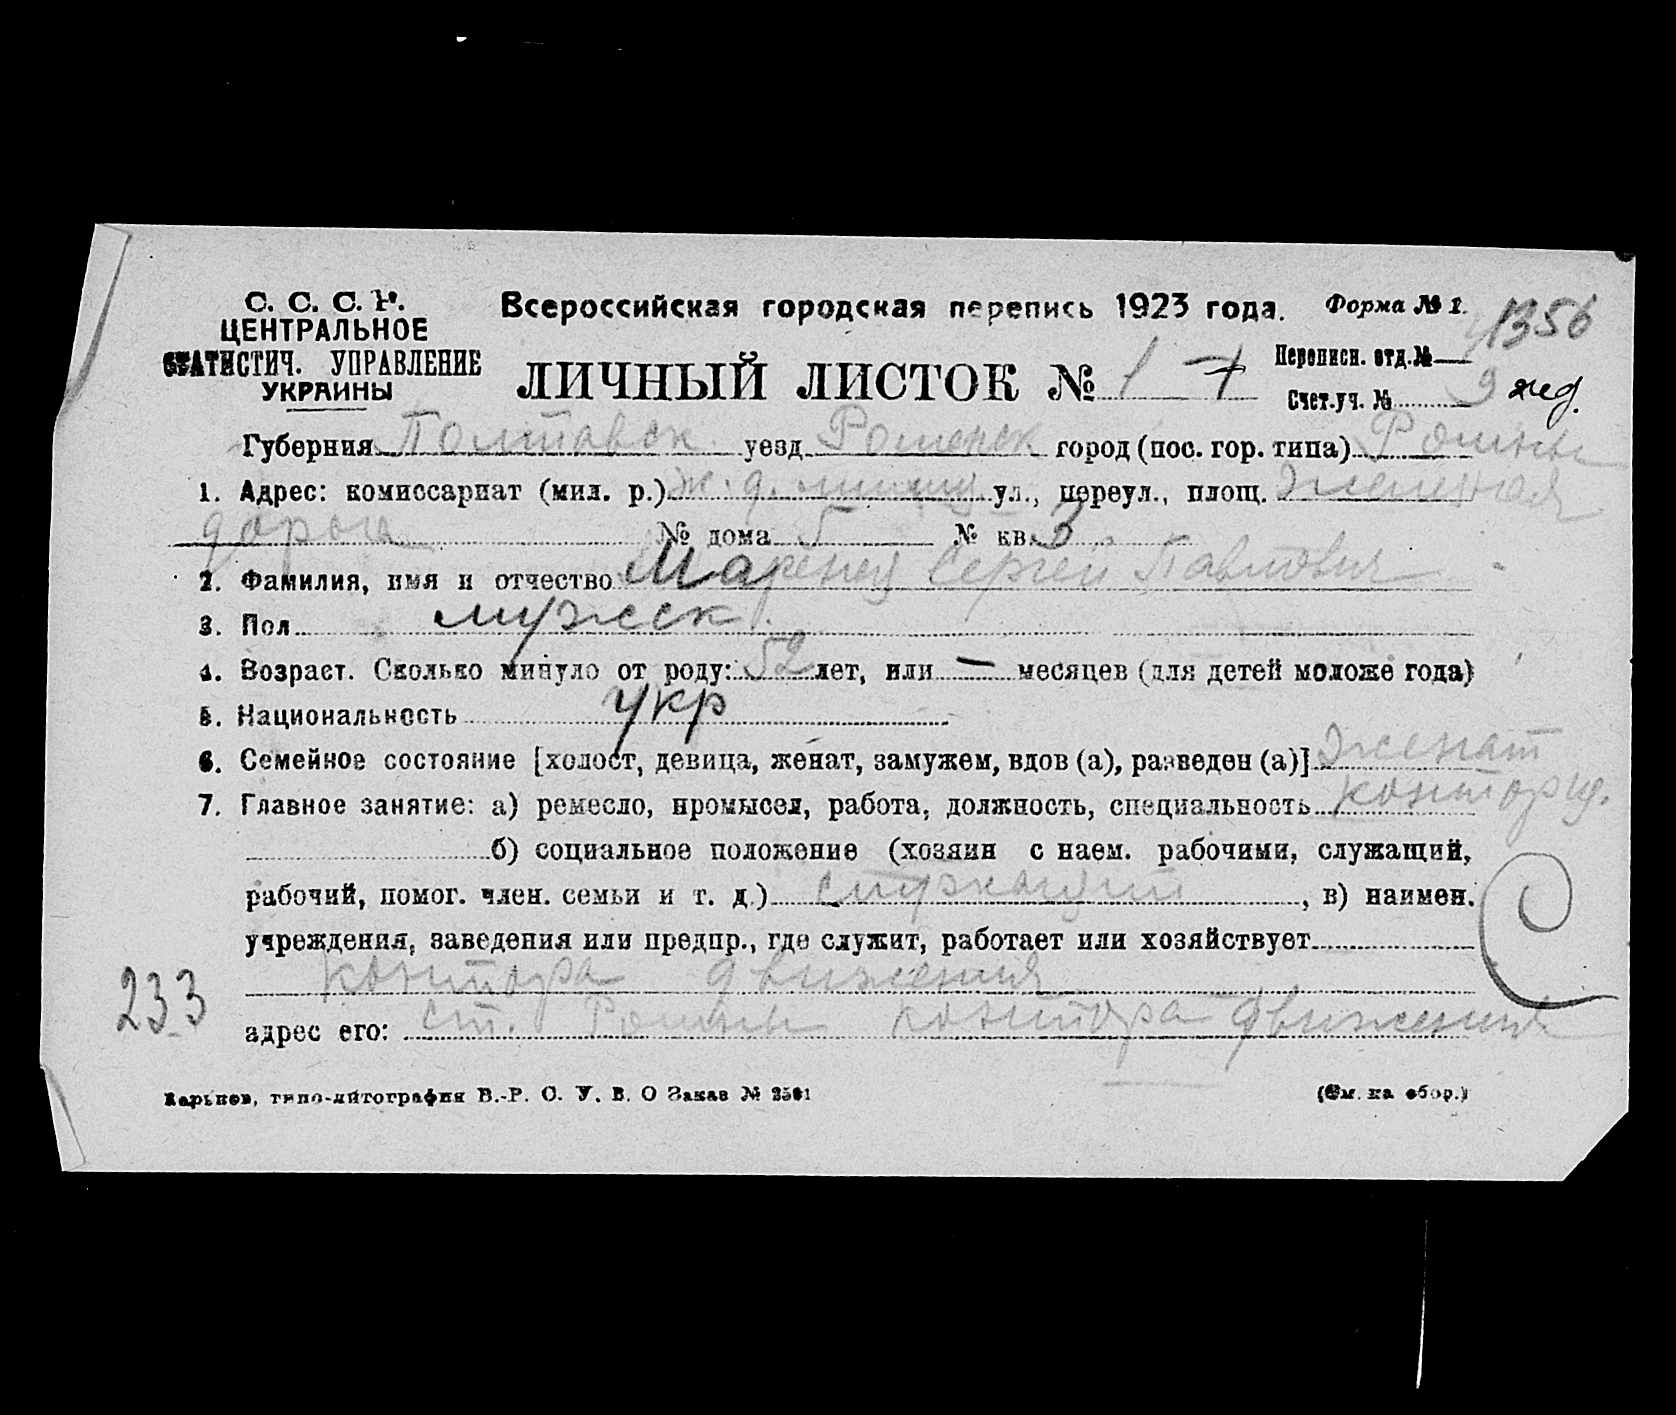 С. С. С. Р.
ЦЕНТРАЛЬНОЕ
СТАТИСТИЧ. УПРАВЛЕНИЕ
УКРАИНЫ
Всероссийская городская перепись 1923 года. Форма № 1.
1356
ЛИЧНЫЙ ЛИСТОК № 1
Переписн. отд. №
Счет. уч. № 9 жд.
Губерния Полтавск уезд Роменск город (пос. гор. типа) Ромны
1. Адрес: комиссариат (мил. р.) ж. д. милиц ул., переул., площ. Железная
дорога № дома 5 № кв. 3
2. Фамилия, имя и отчество Маренец Сергей Павлович
3. Пол мужск.
4. Возраст. Сколько минуло от роду: 52 лет, или — месяцев (для детей моложе года)
5. Национальность укр
6. Семейное состояние [холост, девица, женат, замужем, вдов (а), разведен (а)] женат
7. Главное занятие: а) ремесло, промысел, работа, должность, специальность конторщ.
б) социальное положение (хозяин с наем. рабочими, служащий,
рабочий, помог. член. семьи и т. д.) служащий, в) наимен.
учреждения, заведения или предпр., где служит, работает или хозяйствует
контора движения
233
адрес его: ст. Ромны контора движения
Харьков, типо-литография В.-Р. С. У. В. О Заказ № 2501
(См. на обор.)